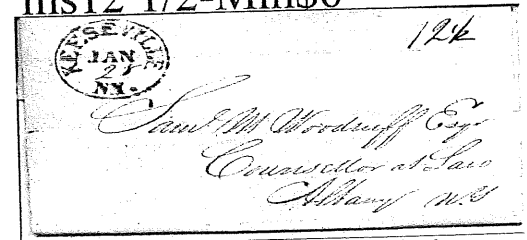 ms12 1/2-Mm$6
KEESEVILLE
JAN
N.Y.
12½
Saml M Woodruff Esqr
Counsellor at Law
Albany N.Y